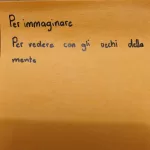 Per immaginare
Per vedere con gli occhi della
mente